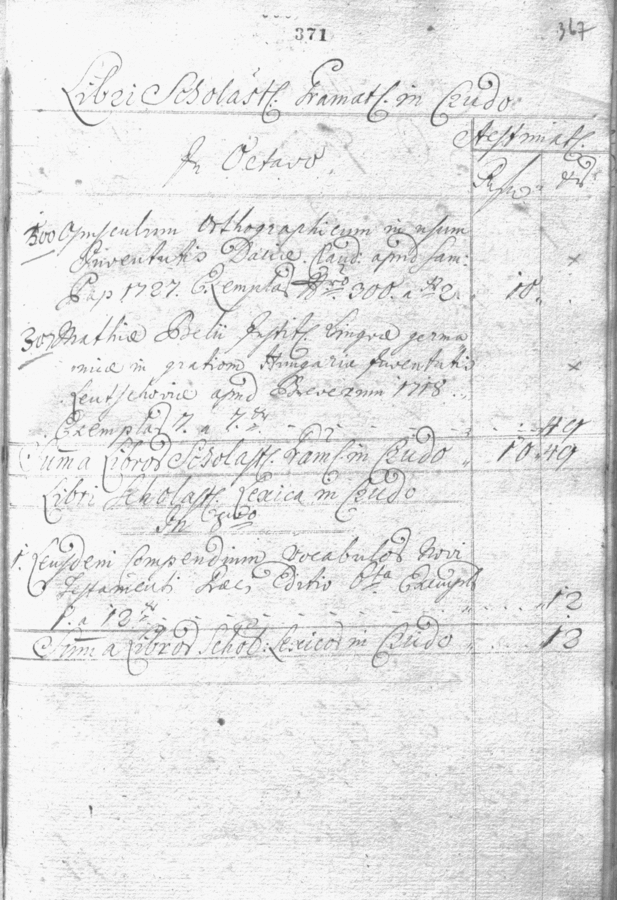 371
367
Libri Scholastc. Gramatc. in Crudo
Aestimatc.
In Octavo
Rfn. xr
300 Opusculum Orthographicum in usum
Juventutis Dacice. Claud: apud Sam:
Pap 1727. Exempla Nro 300. a xr 2. 10.
307 Mathiæ Belii Instit. Linguæ germa
nicæ in gratiam Hungaria Juventutis
Leutschoviæ apud Breverum 1718
Exempla 7. a 7. xr 49
Suma Libror Scholastc. Gramc. in Crudo 10 49
Libri Scholastc. Lexica in Crudo
In 8vo
1. Leusdeni Compendium Vocabulor Novi
Testamenti Græc. Editio 6ta Exempl
1. a 12 xr 12
Suma Libror Schol: Lexicor in Crudo 12